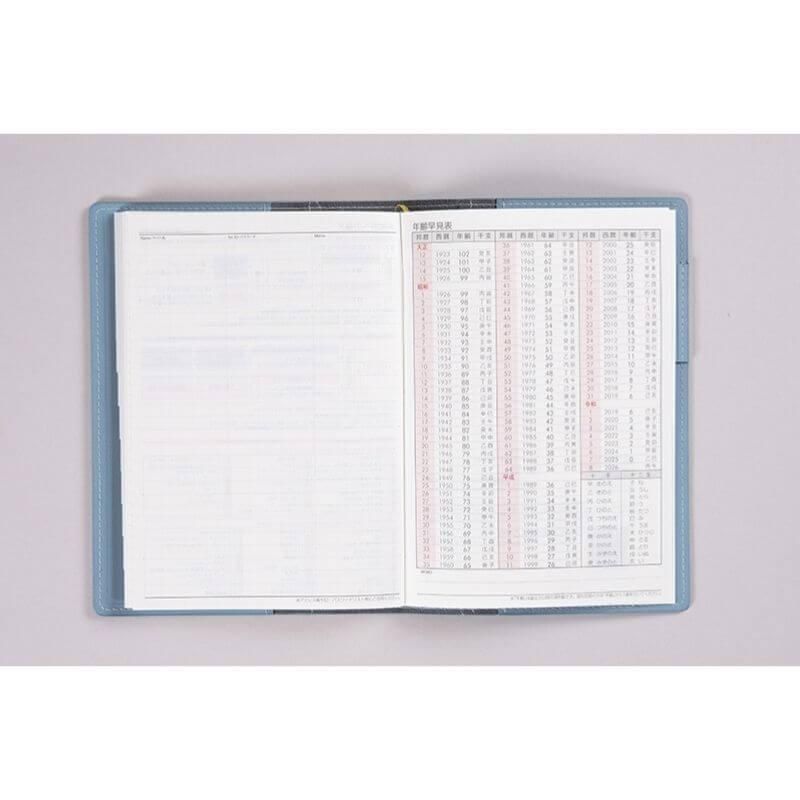 Name/サイト名 Memo
年齢早見表
邦暦 西暦 年齢 干支
大正
12 1923 102 癸亥
13 1924 101 甲子
14 1925 100 乙丑
15 1926 99 丙寅
昭和
1 1926 99 丙寅
2 1927 98 丁卯
3 1928 97 戊辰
4 1929 96 己巳
5 1930 95 庚午
6 1931 94 辛未
7 1932 93 壬申
8 1933 92 癸酉
9 1934 91 甲戌
10 1935 90 乙亥
11 1936 89 丙子
12 1937 88 丁丑
13 1938 87 戊寅
14 1939 86 己卯
15 1940 85 庚辰
16 1941 84 辛巳
17 1942 83 壬午
18 1943 82 癸未
19 1944 81 甲申
20 1945 80 乙酉
21 1946 79 丙戌
22 1947 78 丁亥
23 1948 77 戊子
24 1949 76 己丑
25 1950 75 庚寅
26 1951 74 辛卯
27 1952 73 壬辰
28 1953 72 癸巳
29 1954 71 甲午
30 1955 70 乙未
31 1956 69 丙申
32 1957 68 丁酉
33 1958 67 戊戌
34 1959 66 己亥
35 1960 65 庚子
邦暦 西暦 年齢 干支
36 1961 64 辛丑
37 1962 63 壬寅
38 1963 62 癸卯
39 1964 61 甲辰
40 1965 60 乙巳
41 1966 59 丙午
42 1967 58 丁未
43 1968 57 戊申
44 1969 56 己酉
45 1970 55 庚戌
46 1971 54 辛亥
47 1972 53 壬子
48 1973 52 癸丑
49 1974 51 甲寅
50 1975 50 乙卯
51 1976 49 丙辰
52 1977 48 丁巳
53 1978 47 戊午
54 1979 46 己未
55 1980 45 庚申
56 1981 44 辛酉
57 1982 43 壬戌
58 1983 42 癸亥
59 1984 41 甲子
60 1985 40 乙丑
61 1986 39 丙寅
62 1987 38 丁卯
63 1988 37 戊辰
64 1989 36 己巳
平成
1 1989 36 己巳
2 1990 35 庚午
3 1991 34 辛未
4 1992 33 壬申
5 1993 32 癸酉
6 1994 31 甲戌
7 1995 30 乙亥
8 1996 29 丙子
9 1997 28 丁丑
10 1998 27 戊寅
11 1999 26 己卯
邦暦 西暦 年齢 干支
12 2000 25 庚辰
13 2001 24 辛巳
14 2002 23 壬午
15 2003 22 癸未
16 2004 21 甲申
17 2005 20 乙酉
18 2006 19 丙戌
19 2007 18 丁亥
20 2008 17 戊子
21 2009 16 己丑
22 2010 15 庚寅
23 2011 14 辛卯
24 2012 13 壬辰
25 2013 12 癸巳
26 2014 11 甲午
27 2015 10 乙未
28 2016 9 丙申
29 2017 8 丁酉
30 2018 7 戊戌
31 2019 6 己亥
令和
2019 6 己亥
2 2020 5 庚子
3 2021 4 辛丑
4 2022 3 壬寅
5 2023 2 癸卯
6 2024 1 甲辰
7 2025 0 乙巳
8 2026 丙午
十干 十二支
甲 きのえ 子 ね
乙 きのと 丑 うし
丙 ひのえ 寅 とら
丁 ひのと 卯 う
戊 つちのえ 辰 たつ
己 つちのと 巳 み
庚 かのえ 午 うま
辛 かのと 未 ひつじ
壬 みずのえ 申 さる
癸 みずのと 酉 とり
戌 いぬ
亥 い
MEMO